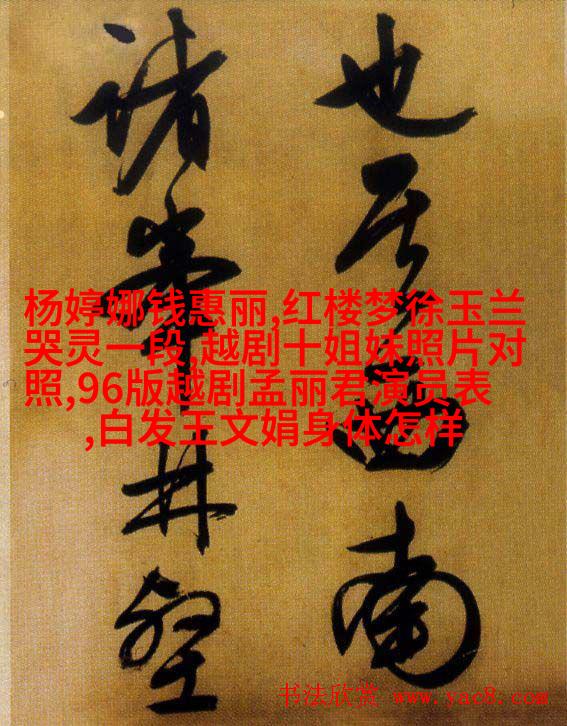 也其西南
諸峯林壑
杨婷娜钱惠丽,红楼梦徐玉兰
哭灵一段,越剧十姐妹照片对
照,96版越剧孟丽君演员表
,白发王文娟身体怎样
书法欣赏 www.yac8.com